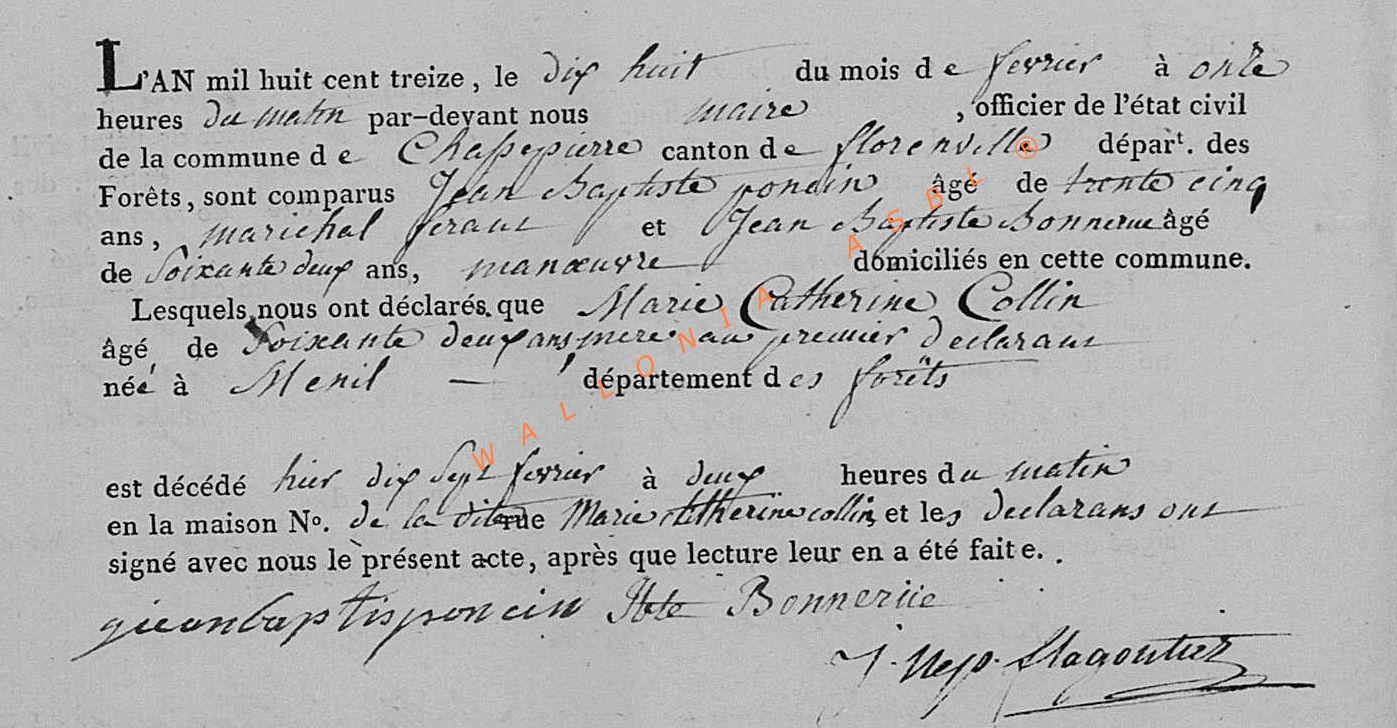 L'AN mil huit cent treize, le dix huit du mois de fevrier à onze
heures du matin par-devant nous maire, officier de l'état civil
de la commune de Chassepierre canton de florenville départ. des
Forêts, sont comparus Jean Baptiste poncin âgé de trente cinq
ans, marichal ferant et Jean Baptiste Bonnerue âgé
de Soixante deux ans, manœuvre domiciliés en cette commune.
Lesquels nous ont déclarés que Marie Catherine Collin
âgé de Soixante deux ans mere au premier declarant
née à Menil — département des forêts
est décédé hier dix Sept fevrier à deux heures du matin
en la maison No. de la dite rue Marie Catherine collin, et les declarans ont
signé avec nous le présent acte, après que lecture leur en a été faite.
gieanbaptisponcin JBte Bonneriie
J. Nep.
WALLONIA ASBL ®